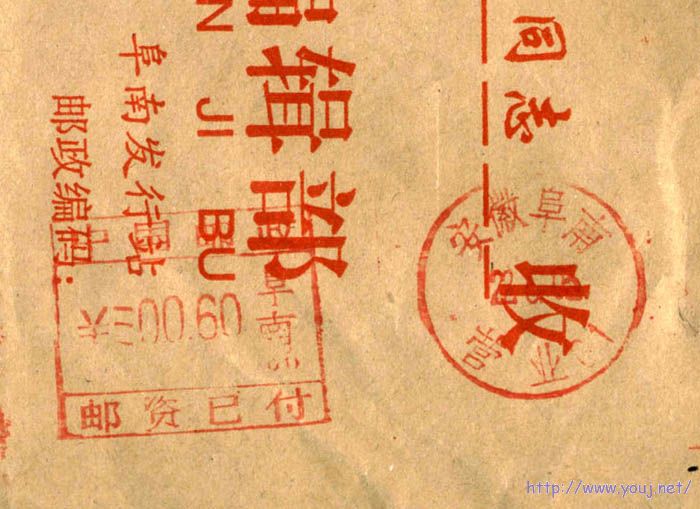 同志 收
辑部
N JI BU
阜南发行站
邮政编码：
安徽阜南
00.60
阜南
邮资已付
http://www.youj.net/